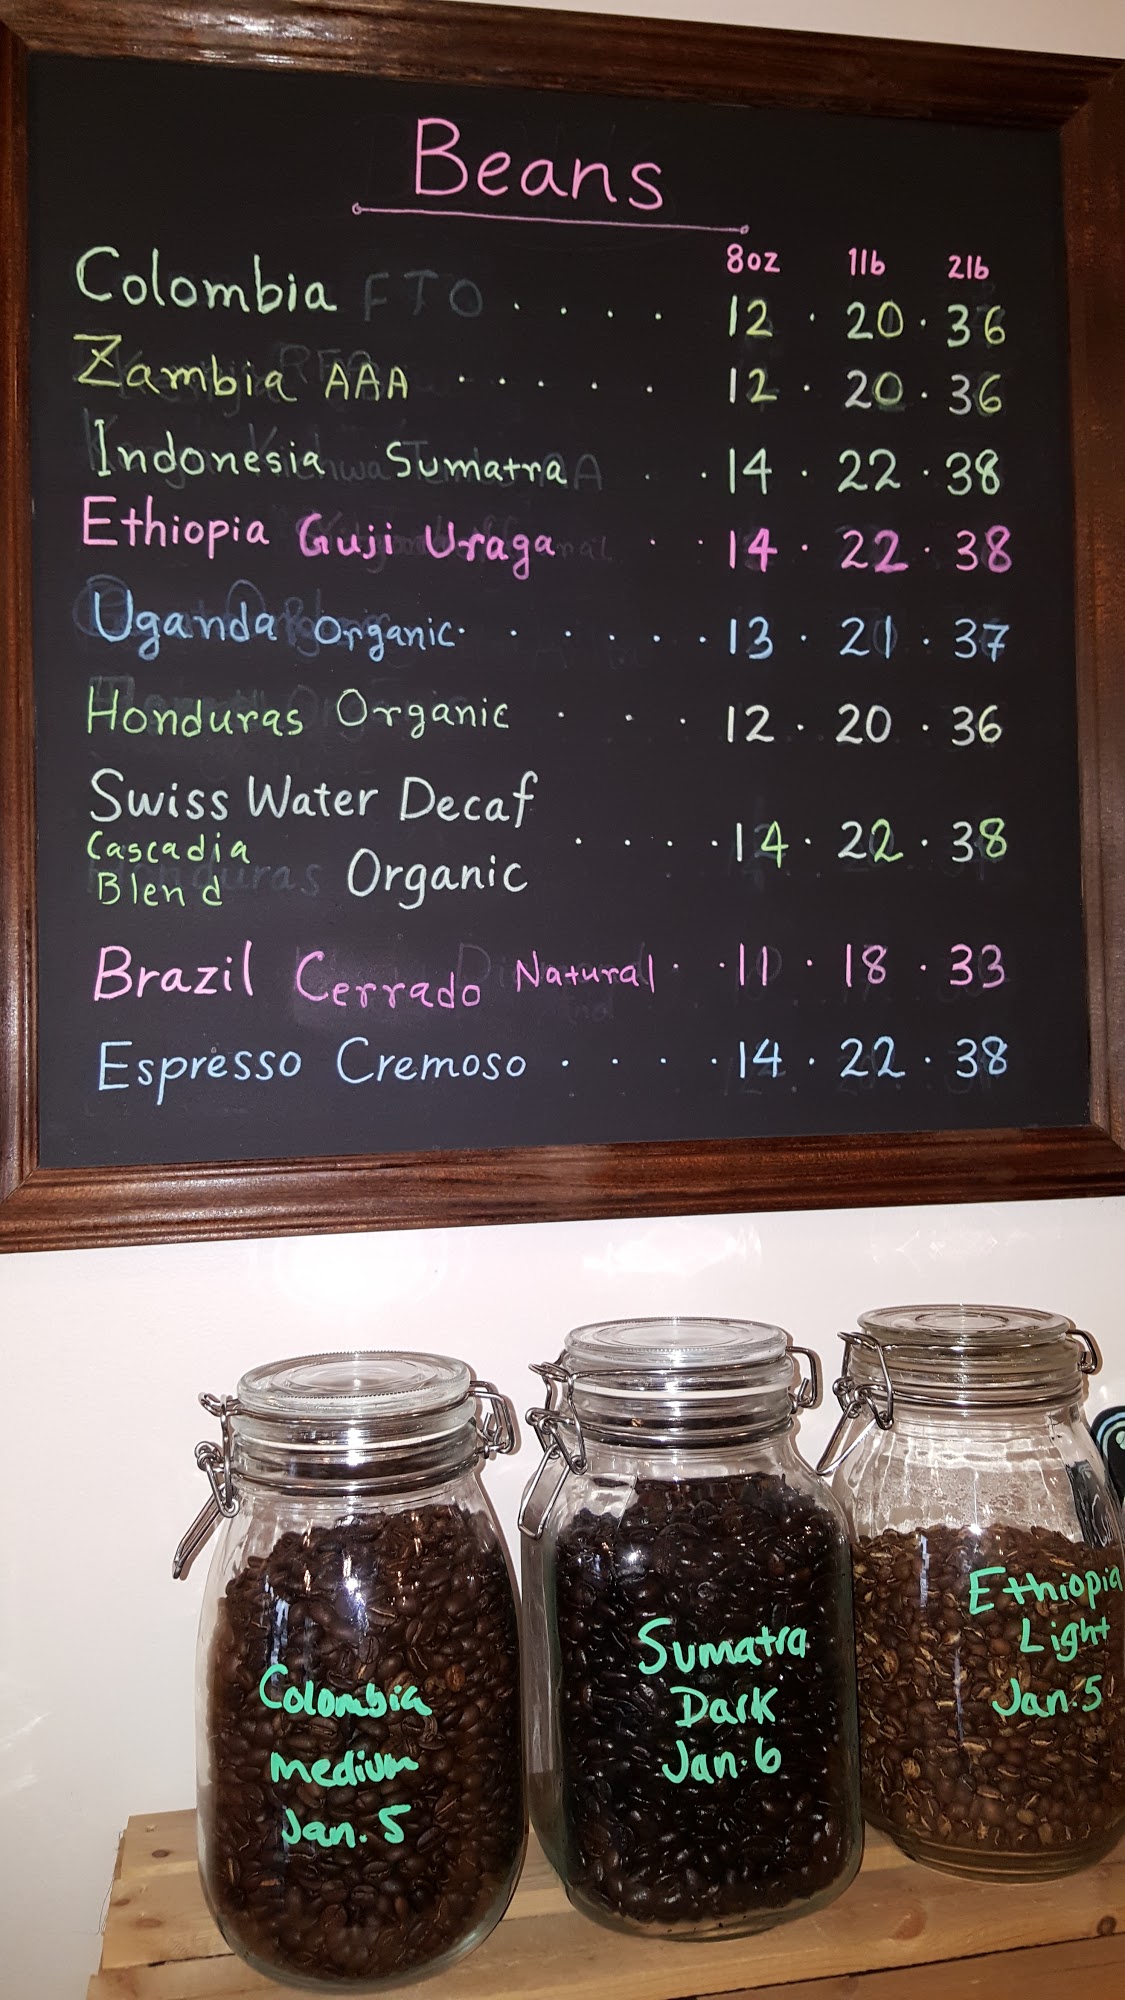 Beans
8oz 1lb 2lb
Colombia FTO . . . . 12 . 20 . 36
Zambia AAA . . . . . 12 . 20 . 36
Indonesia Sumatra . . 14 . 22 . 38
Ethiopia Guji Uraga . . 14 . 22 . 38
Uganda Organic . . . . . . 13 . 21 . 37
Honduras Organic . . . 12 . 20 . 36
Swiss Water Decaf
Cascadia
Blend Organic . . . . 14 . 22 . 38
Brazil Cerrado Natural . . 11 . 18 . 33
Espresso Cremoso . . . . 14 . 22 . 38
Colombia
medium
Jan. 5
Sumatra
Dark
Jan. 6
Ethiopia
Light
Jan. 5